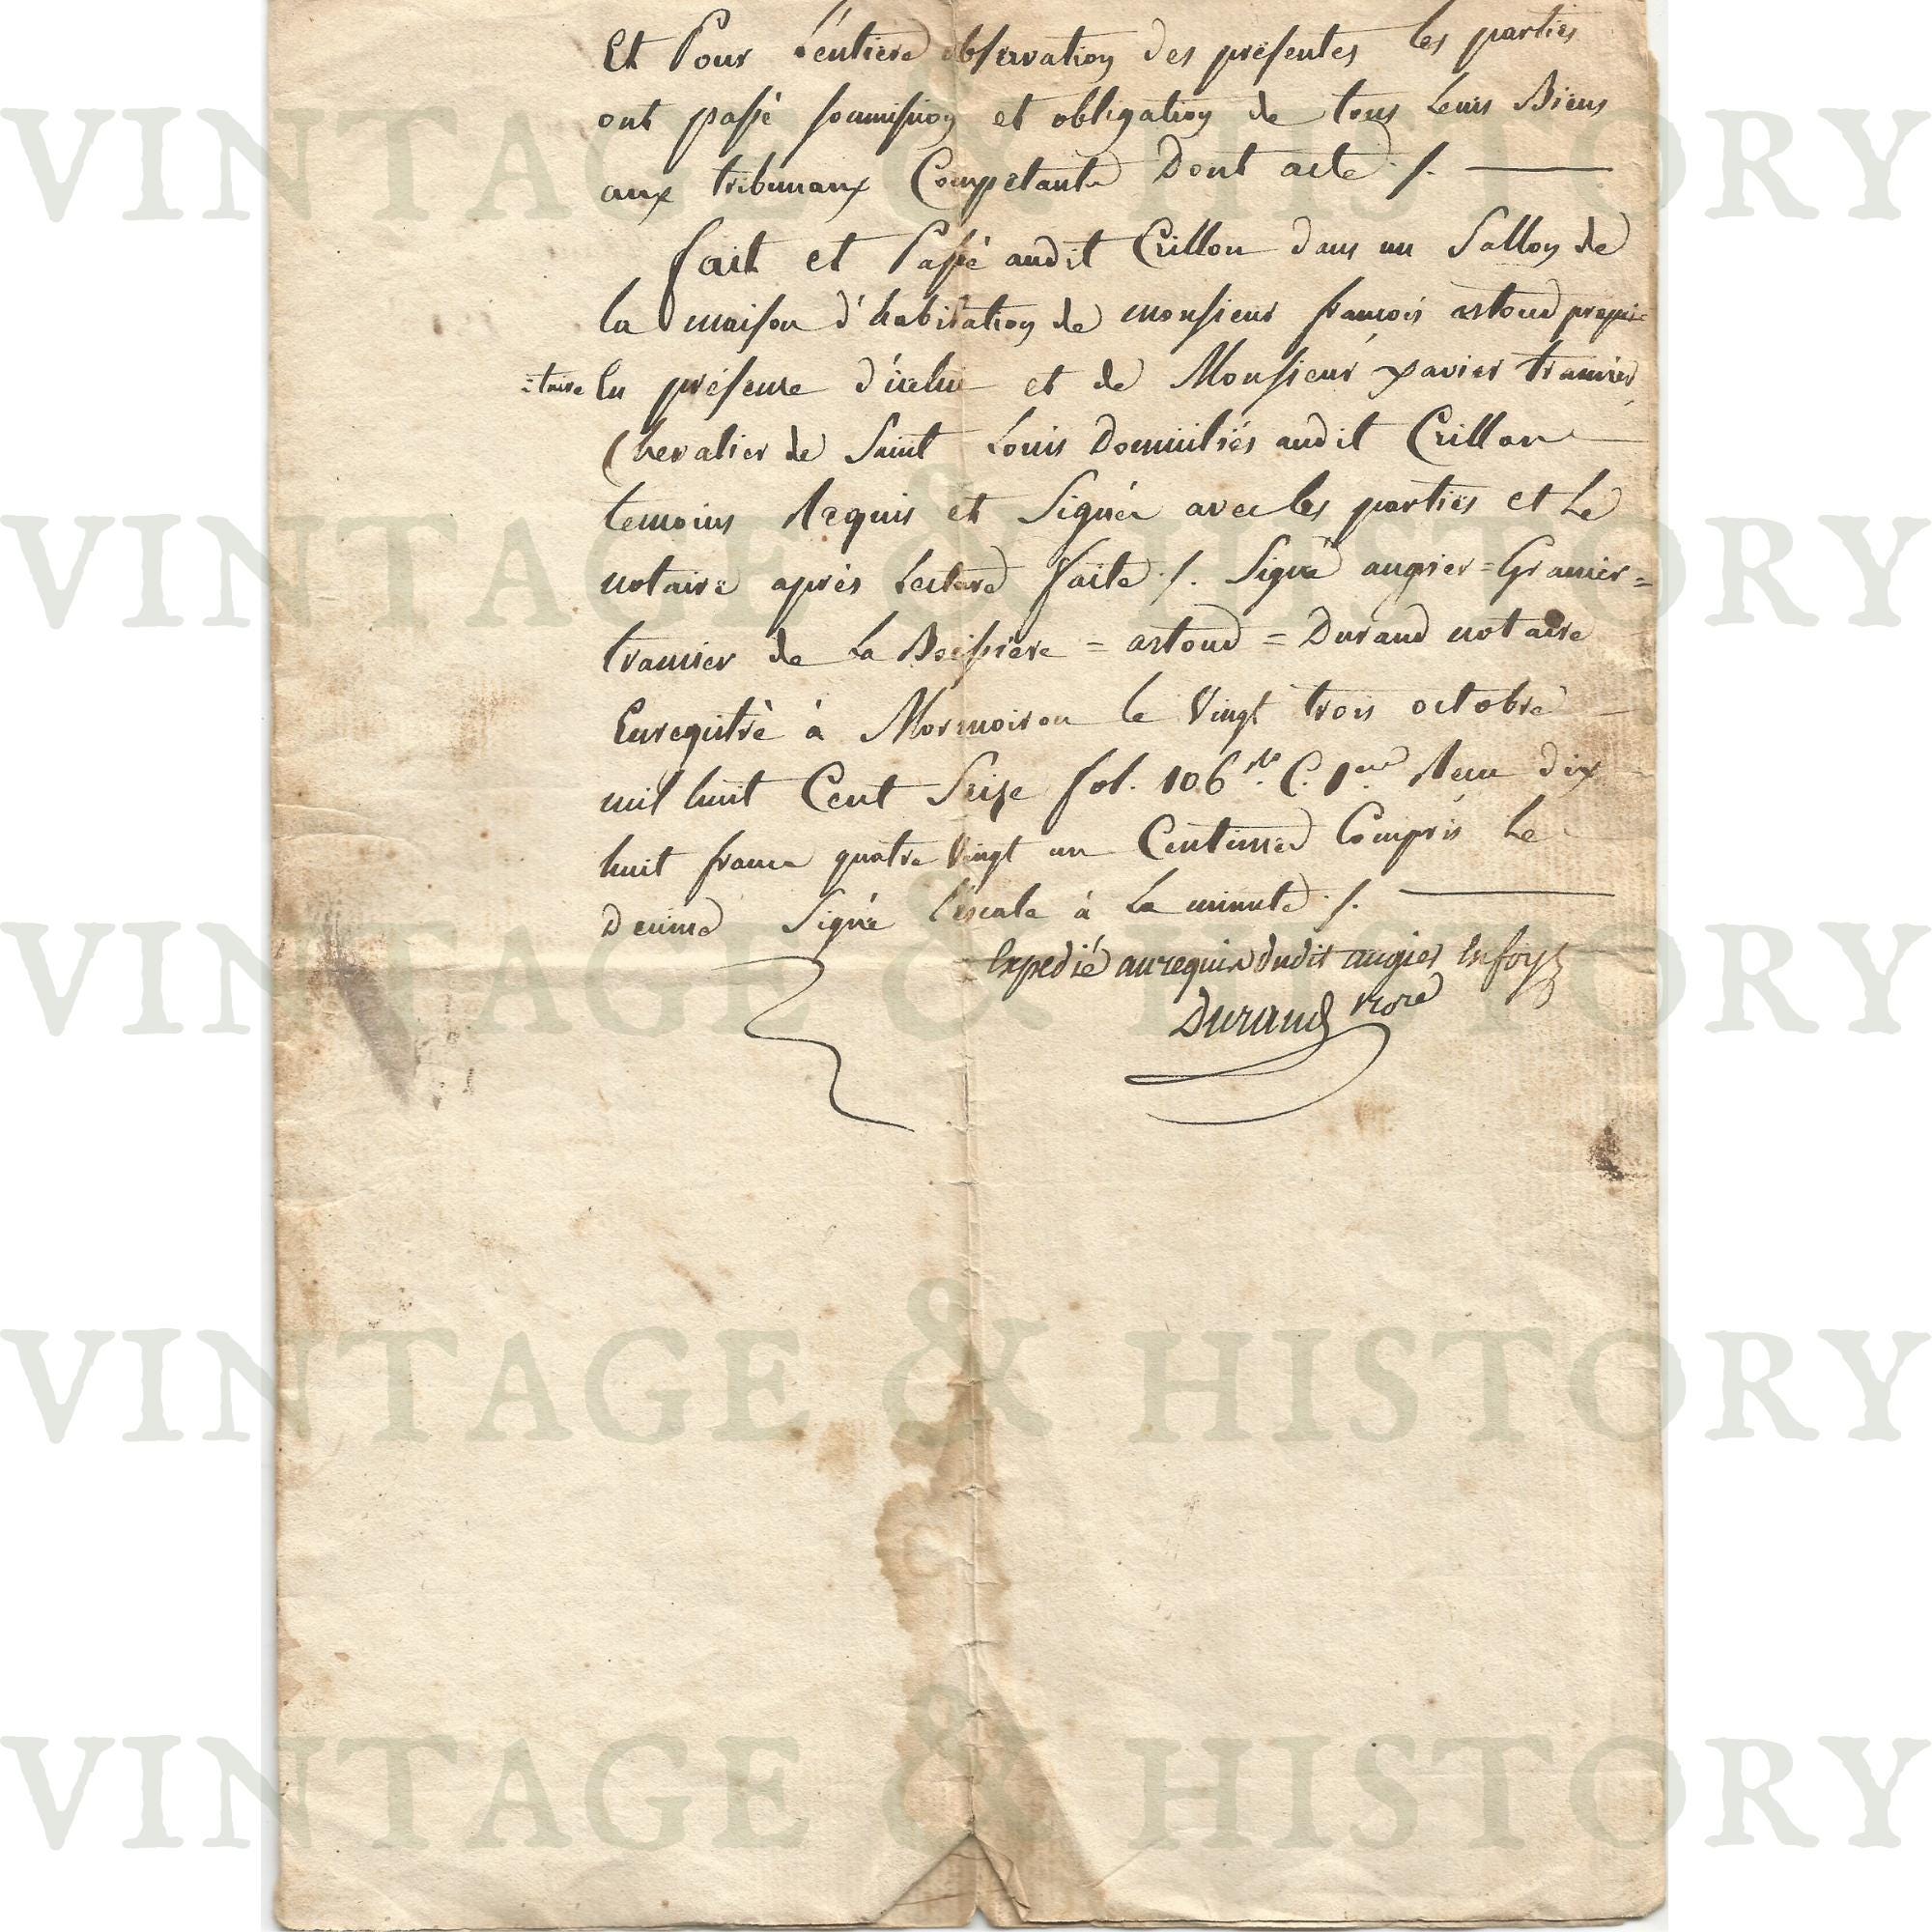 Et Pour L'entiere observation des présentes les parties
ont passé soumission et obligation de tous Leurs Biens
aux tribunaux Compétants Dont acte ./.
fait et Passé audit Crillon dans un Sallon de
la maison d'habitation de monsieur françois astoud proprié
=taire En présence d'icelui et de Monsieur xavier tramier
Chevalier de Saint Louis Domiciliés audit Crillon
temoins Requis et Signés avec les parties et Le
notaire après Lecture faite ./. Signé augier = Granier =
tramier de La Boissière = astoud = Durand notaire
Enregistré à Mormoiron le Vingt trois octobre
mil huit Cent Seize fol. 106 C. 1er Reçu dix
huit francs quatre Vingt un Centimes Compris Le
Decime Signé L'escale à La minute ./.
Expedié au requis dudit augier En foy
Durand nore
VINTAGE & HISTORY
VINTAGE & HISTORY
VINTAGE & HISTORY
VINTAGE & HISTORY
VINTAGE & HISTORY